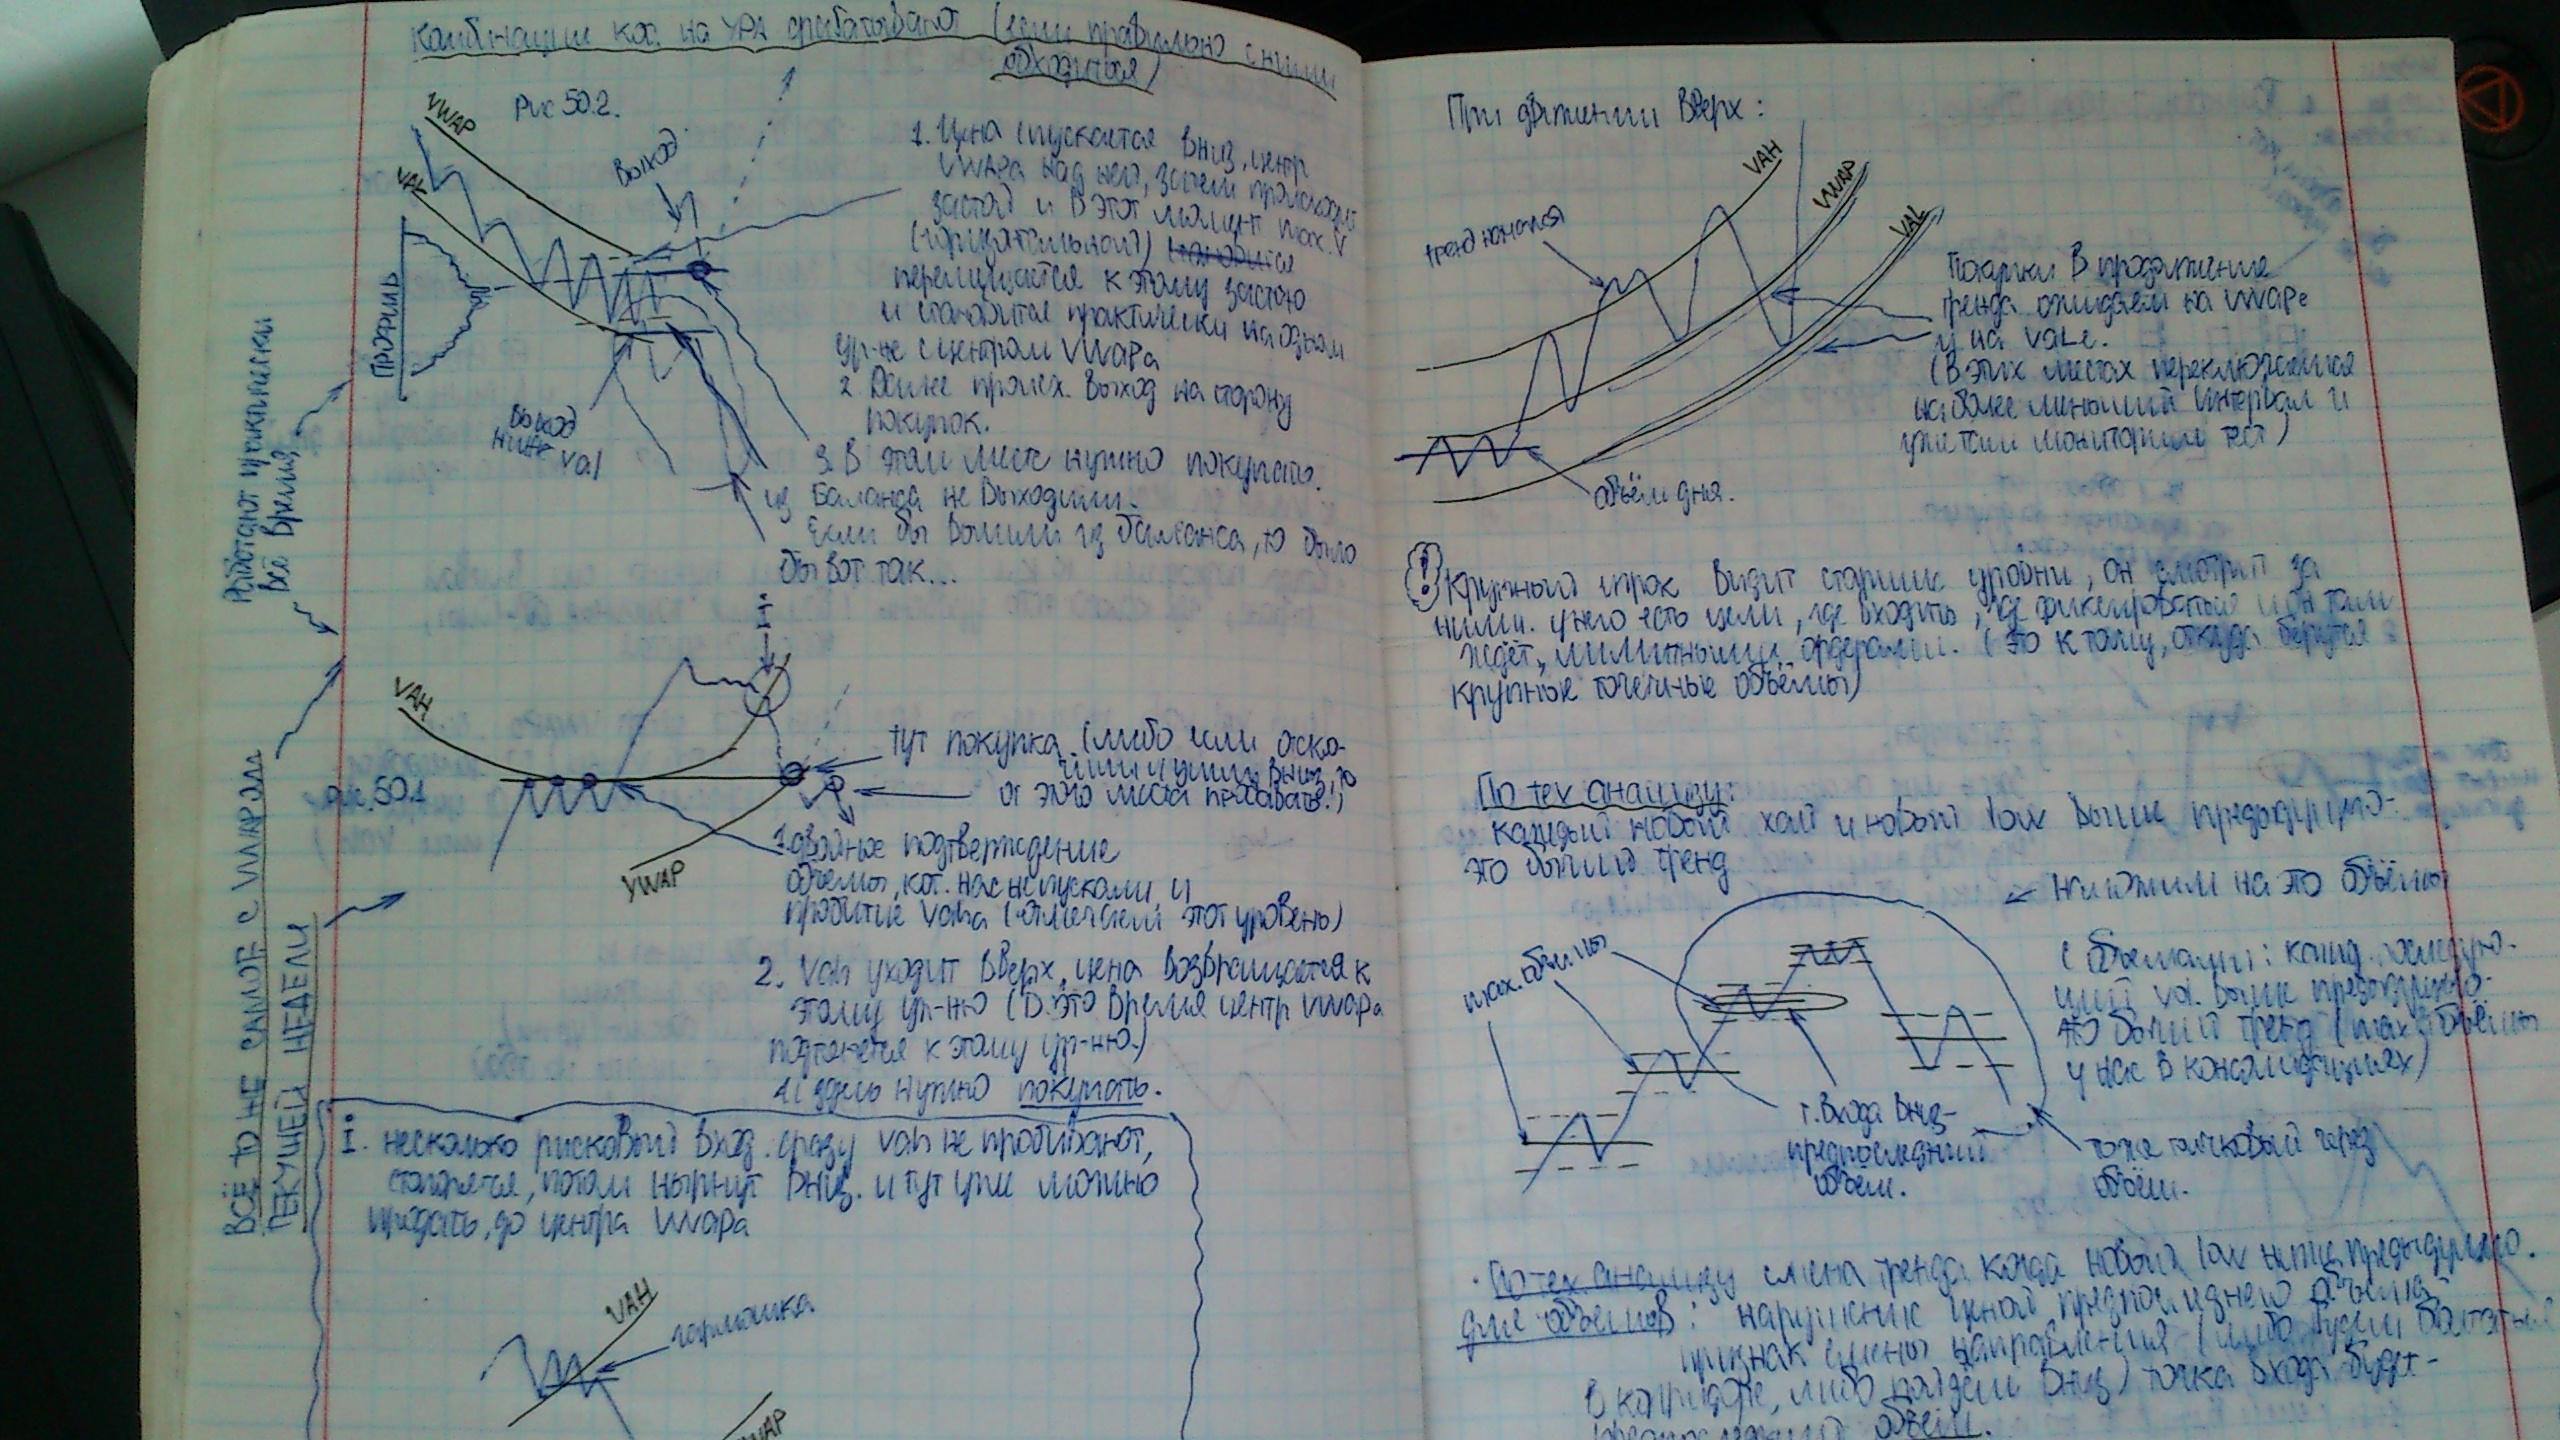 Комбинации кот. на УРА срабатывают (если правильно с ними
обходиться)
Рис 50.2.
VWAP
VAL
Выход
Профиль
Выход
ниже val
1. Цена спускается вниз, центр
VWAPа над ней, затем происходит
застой и в этот момент max. V
(горизонтальной)
перемещается к этому застою
и становится практически на одном
ур-не с центром VWAPа
2. Далее происх. выход на сторону
покупок.
3. В этом месте нужно покупать.
из баланса не выходили.
Если бы вышли из баланса, то было
бы вот так...
Работают циклически
всё время
i.
VAH
Рис. 50.1
VWAP
тут покупка (либо если
и ушли вниз, то
от этого места продавать!)
1. двойное подтверждение
объёмы, кот. нас не пускали, и
пробитие Vaha (отмечаем этот уровень)
2. Vah уходит вверх, цена возвращается к
этому ур-ню (в это время центр VWAPа
подтянется к этому ур-ню.)
и здесь нужно покупать.
ВСЁ ТО ЖЕ САМОЕ С VWAPОМ
ТЕКУЩЕЙ НЕДЕЛИ
i. несколько рисковый вход. сразу vah не пробивают,
потом нырнут вниз. и тут уже можно
продать, до центра VWAPа
VAH
гармошка
VWAP
При движении вверх:
VAH
VWAP
VAL
тренд начался
объём дня.
Покупки в продолжение
тренда ожидаем на VWAPе
и на VALе.
(В этих местах переключаемся
на более меньший интервал и
уже там мониторим тест)
! Крупный игрок видит старшие уровни, он смотрит за
ними. у него есть цели, где входить, где фиксироваться и он там
ждёт, лимитными ордерами. (это к тому, откуда берутся
крупные точечные объёмы)
По тех анализу:
каждый новый хай и новый low выше предыдущего-
это бычий тренд
Наложим на это объёмы
max. объёмы
С объёмами: кажд. последую-
щий vol. выше предыдущего-
это бычий тренд (max объёмы
у нас в консолидациях)
т. входа вниз-
предпоследний
объём.
тоже толчковый через
объём.
· По тех. анализу смена тренда когда новый low ниже предыдущего.
Для объёмов: нарушение ценой предпоследнего объёма
признак смены направления (либо будем болтаться
в коридоре, либо пойдём вниз) точка входа будет-
предпоследний объём.